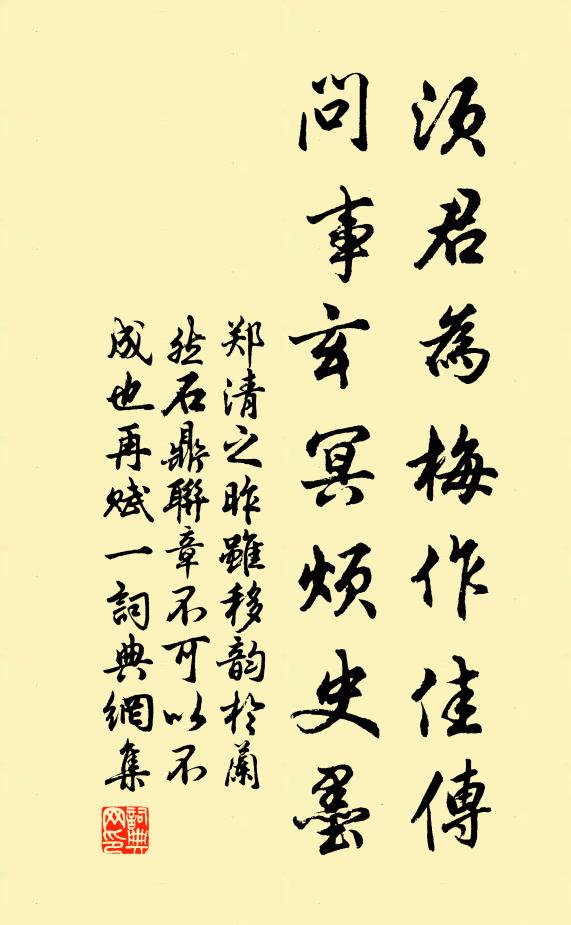 须君為梅作佳傳
問事玄冥煩史墨
郑清之昨雖移韵於蘭
然石鼎聯章不可以不
成也再赋一詞典網集
詞典网印